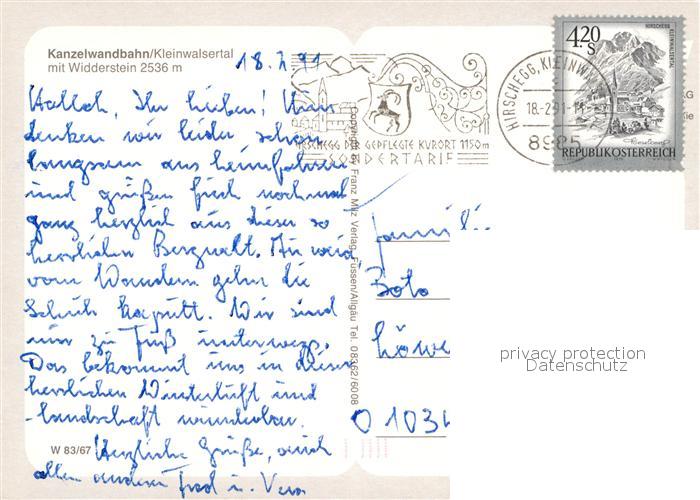 Kanzelwandbahn/Kleinwalsertal
mit Widderstein 2536 m
18. 2. 91
Hallo, Ihr Lieben! Nun
denken wir leider schon
langsam ans heimfahren
und grüßen Euch nochmal
ganz herzlich aus dieser so
herrlichen Bergwelt.
vom Wandern gehn die
Schuh kaputt. Wir sind
nur zu Fuß unterwegs.
Das bekommt uns in dieser
herrlichen Winterluft und
-landschaft wunderbar.
Herzliche Grüße, auch
allen anderen Fred u. Vera
W 83/67
Copyright by Franz Milz Verlag, Füssen/Allgäu Tel. 08362/6008
HIRSCHEGG DER GEPFLEGTE KURORT 1150 m
SONDERTARIF
HIRSCHEGG, KLEINW
18.-2.91-
8985
4.20
S
HIRSCHEGG
KLEINWALSERTAL
REPUBLIK ÖSTERREICH
Famili
Boto
Löwe
O 1034
privacy protection
Datenschutz